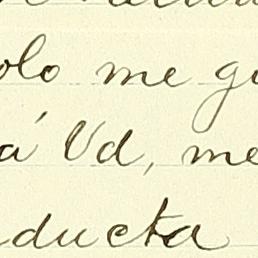 olo me gu
á Vd, me
ducta